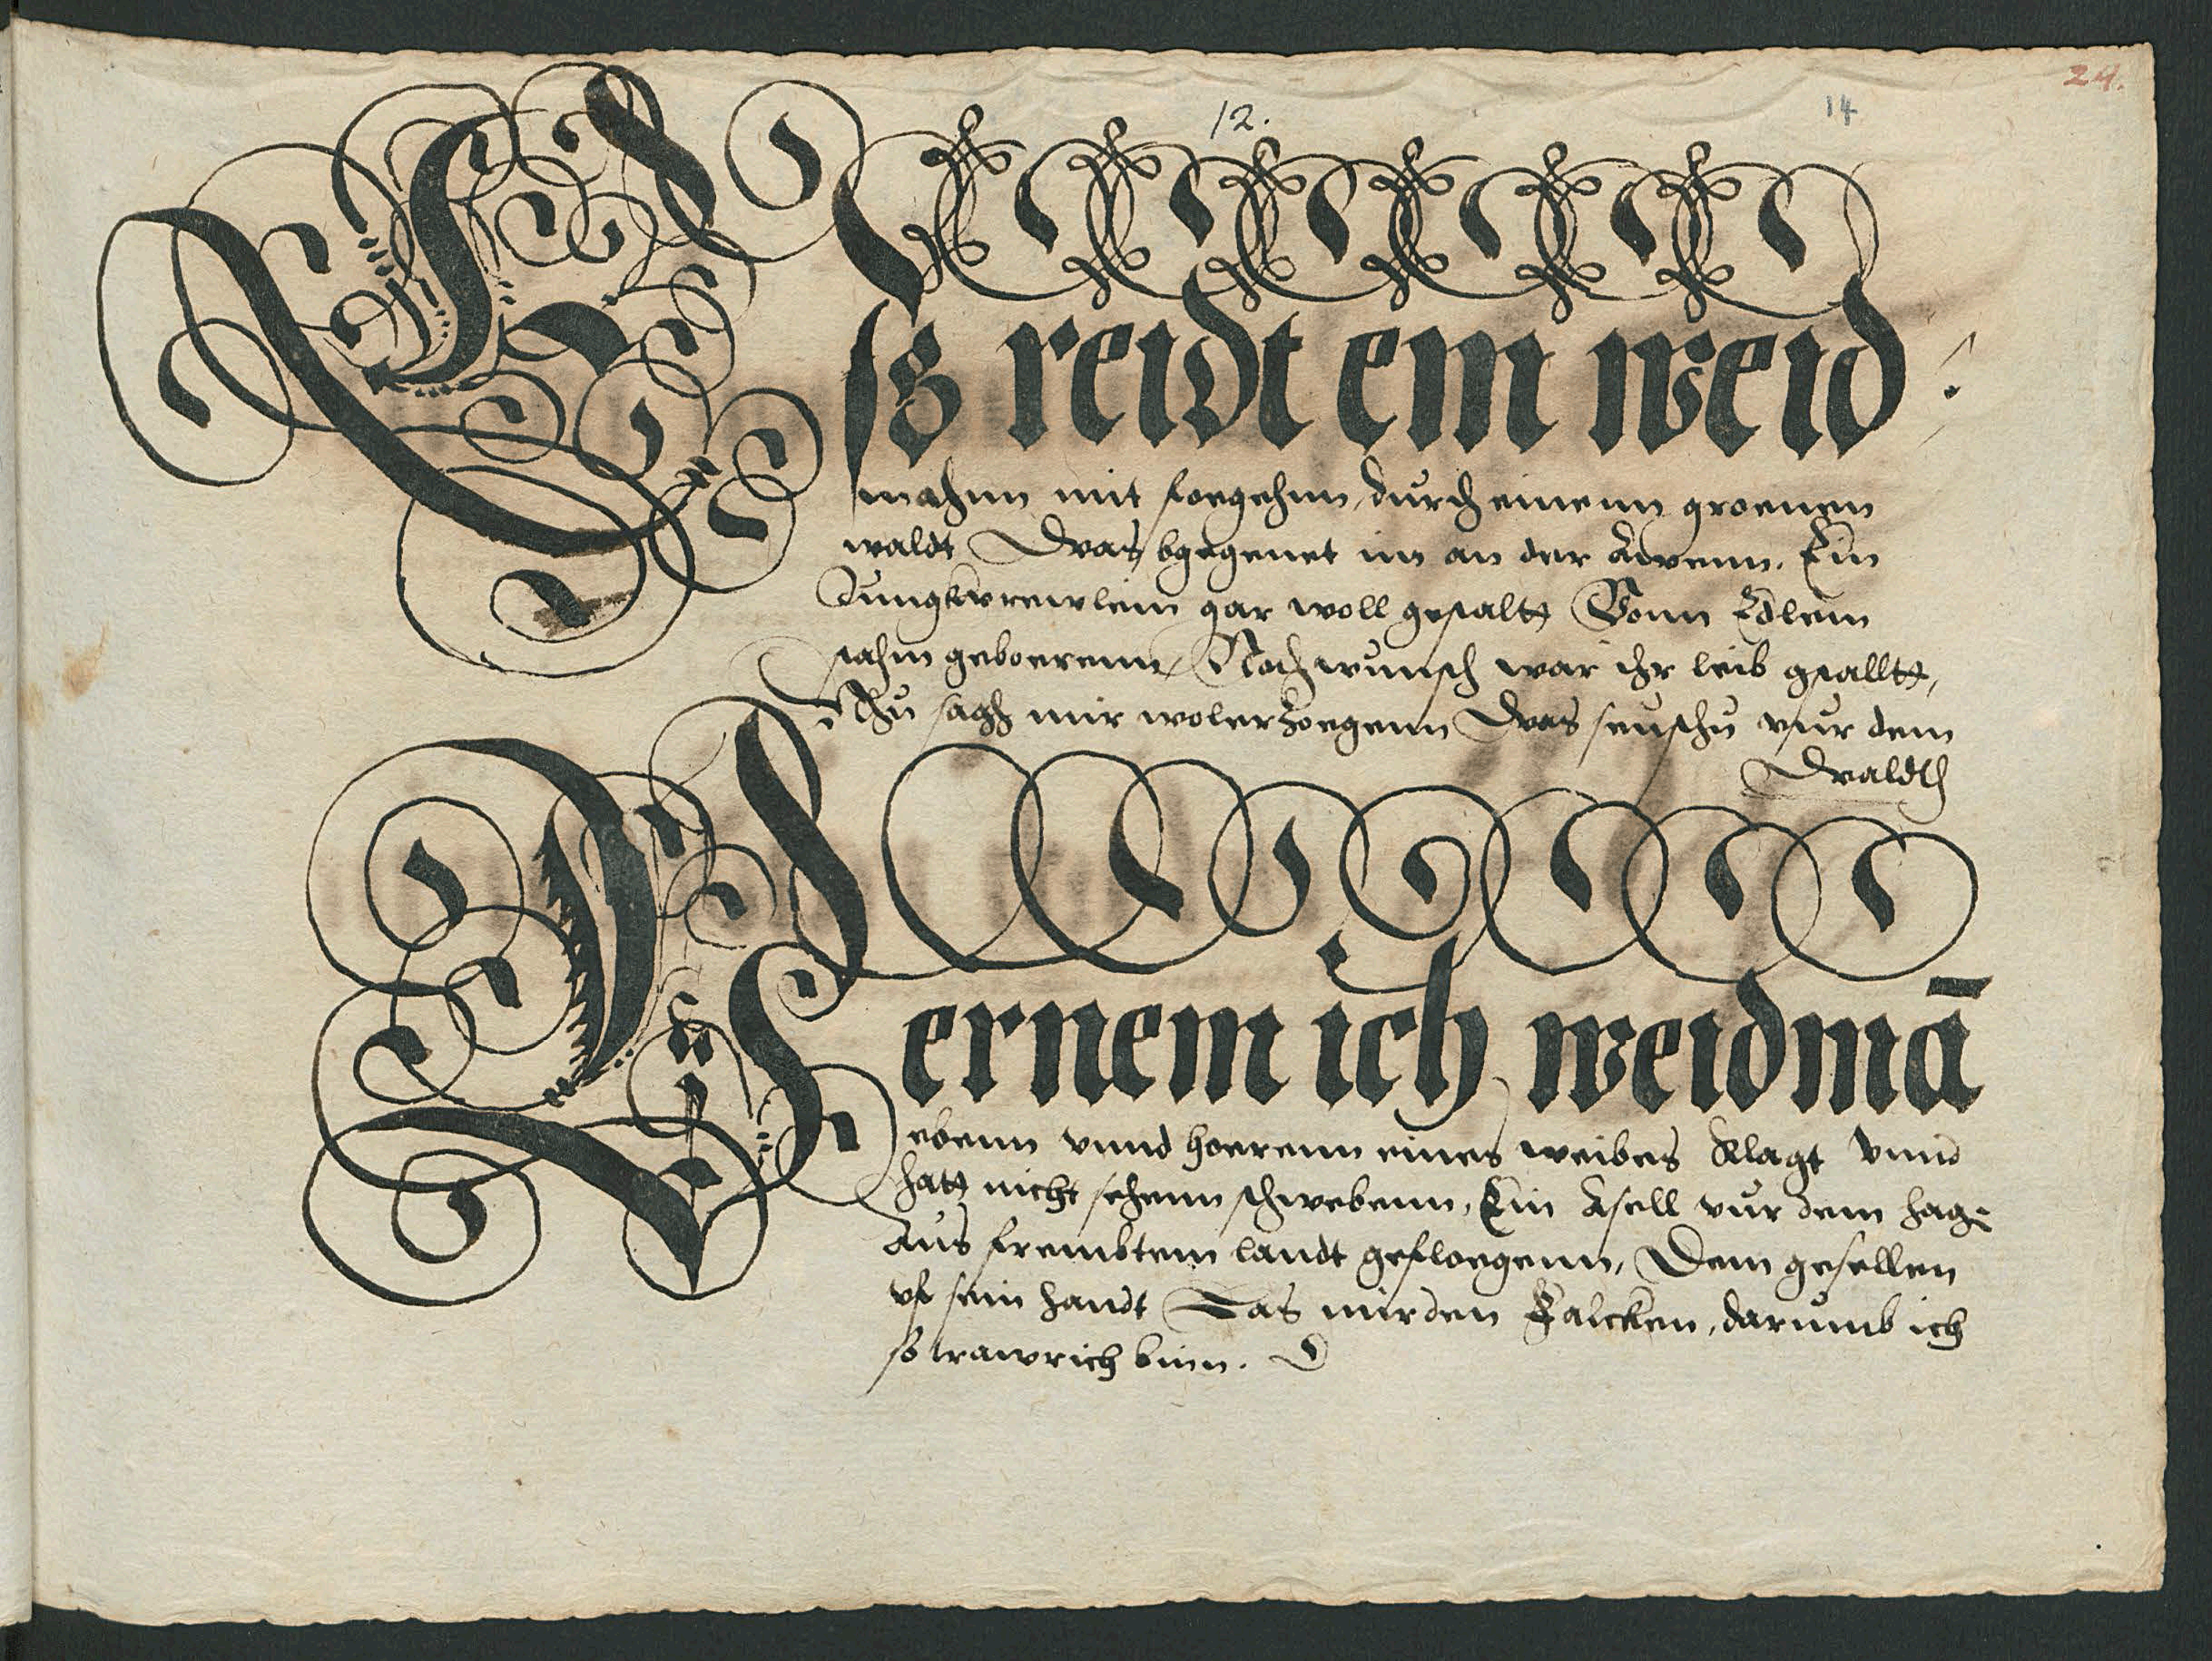 12.
14
24.
Esß reidt ein weid
mahnn mit sorgehnn, durch einenn groenen
waldt Dwas bgegenet im an der Awenn. Ein
Jungkwrewlein gar woll gestaltt Vonn Edlem
stahm geboerenn, Nach wunsch war ihr leib gstalltt,
Nhu sagh mir wolerzoegenn Dwas suchstu vur dem
Dwaldth
Vernem ich weidmā
ebenn vnnd hoerenn eines weibes klagt Vnnd
hatt nicht sehenn schwebenn, Ein gsell vur dem hag
Aus frembtem landt gefloegenn, Dem gesellen
vf sein handt Das mir den Falcken, darumb ich
so trawrich binn.